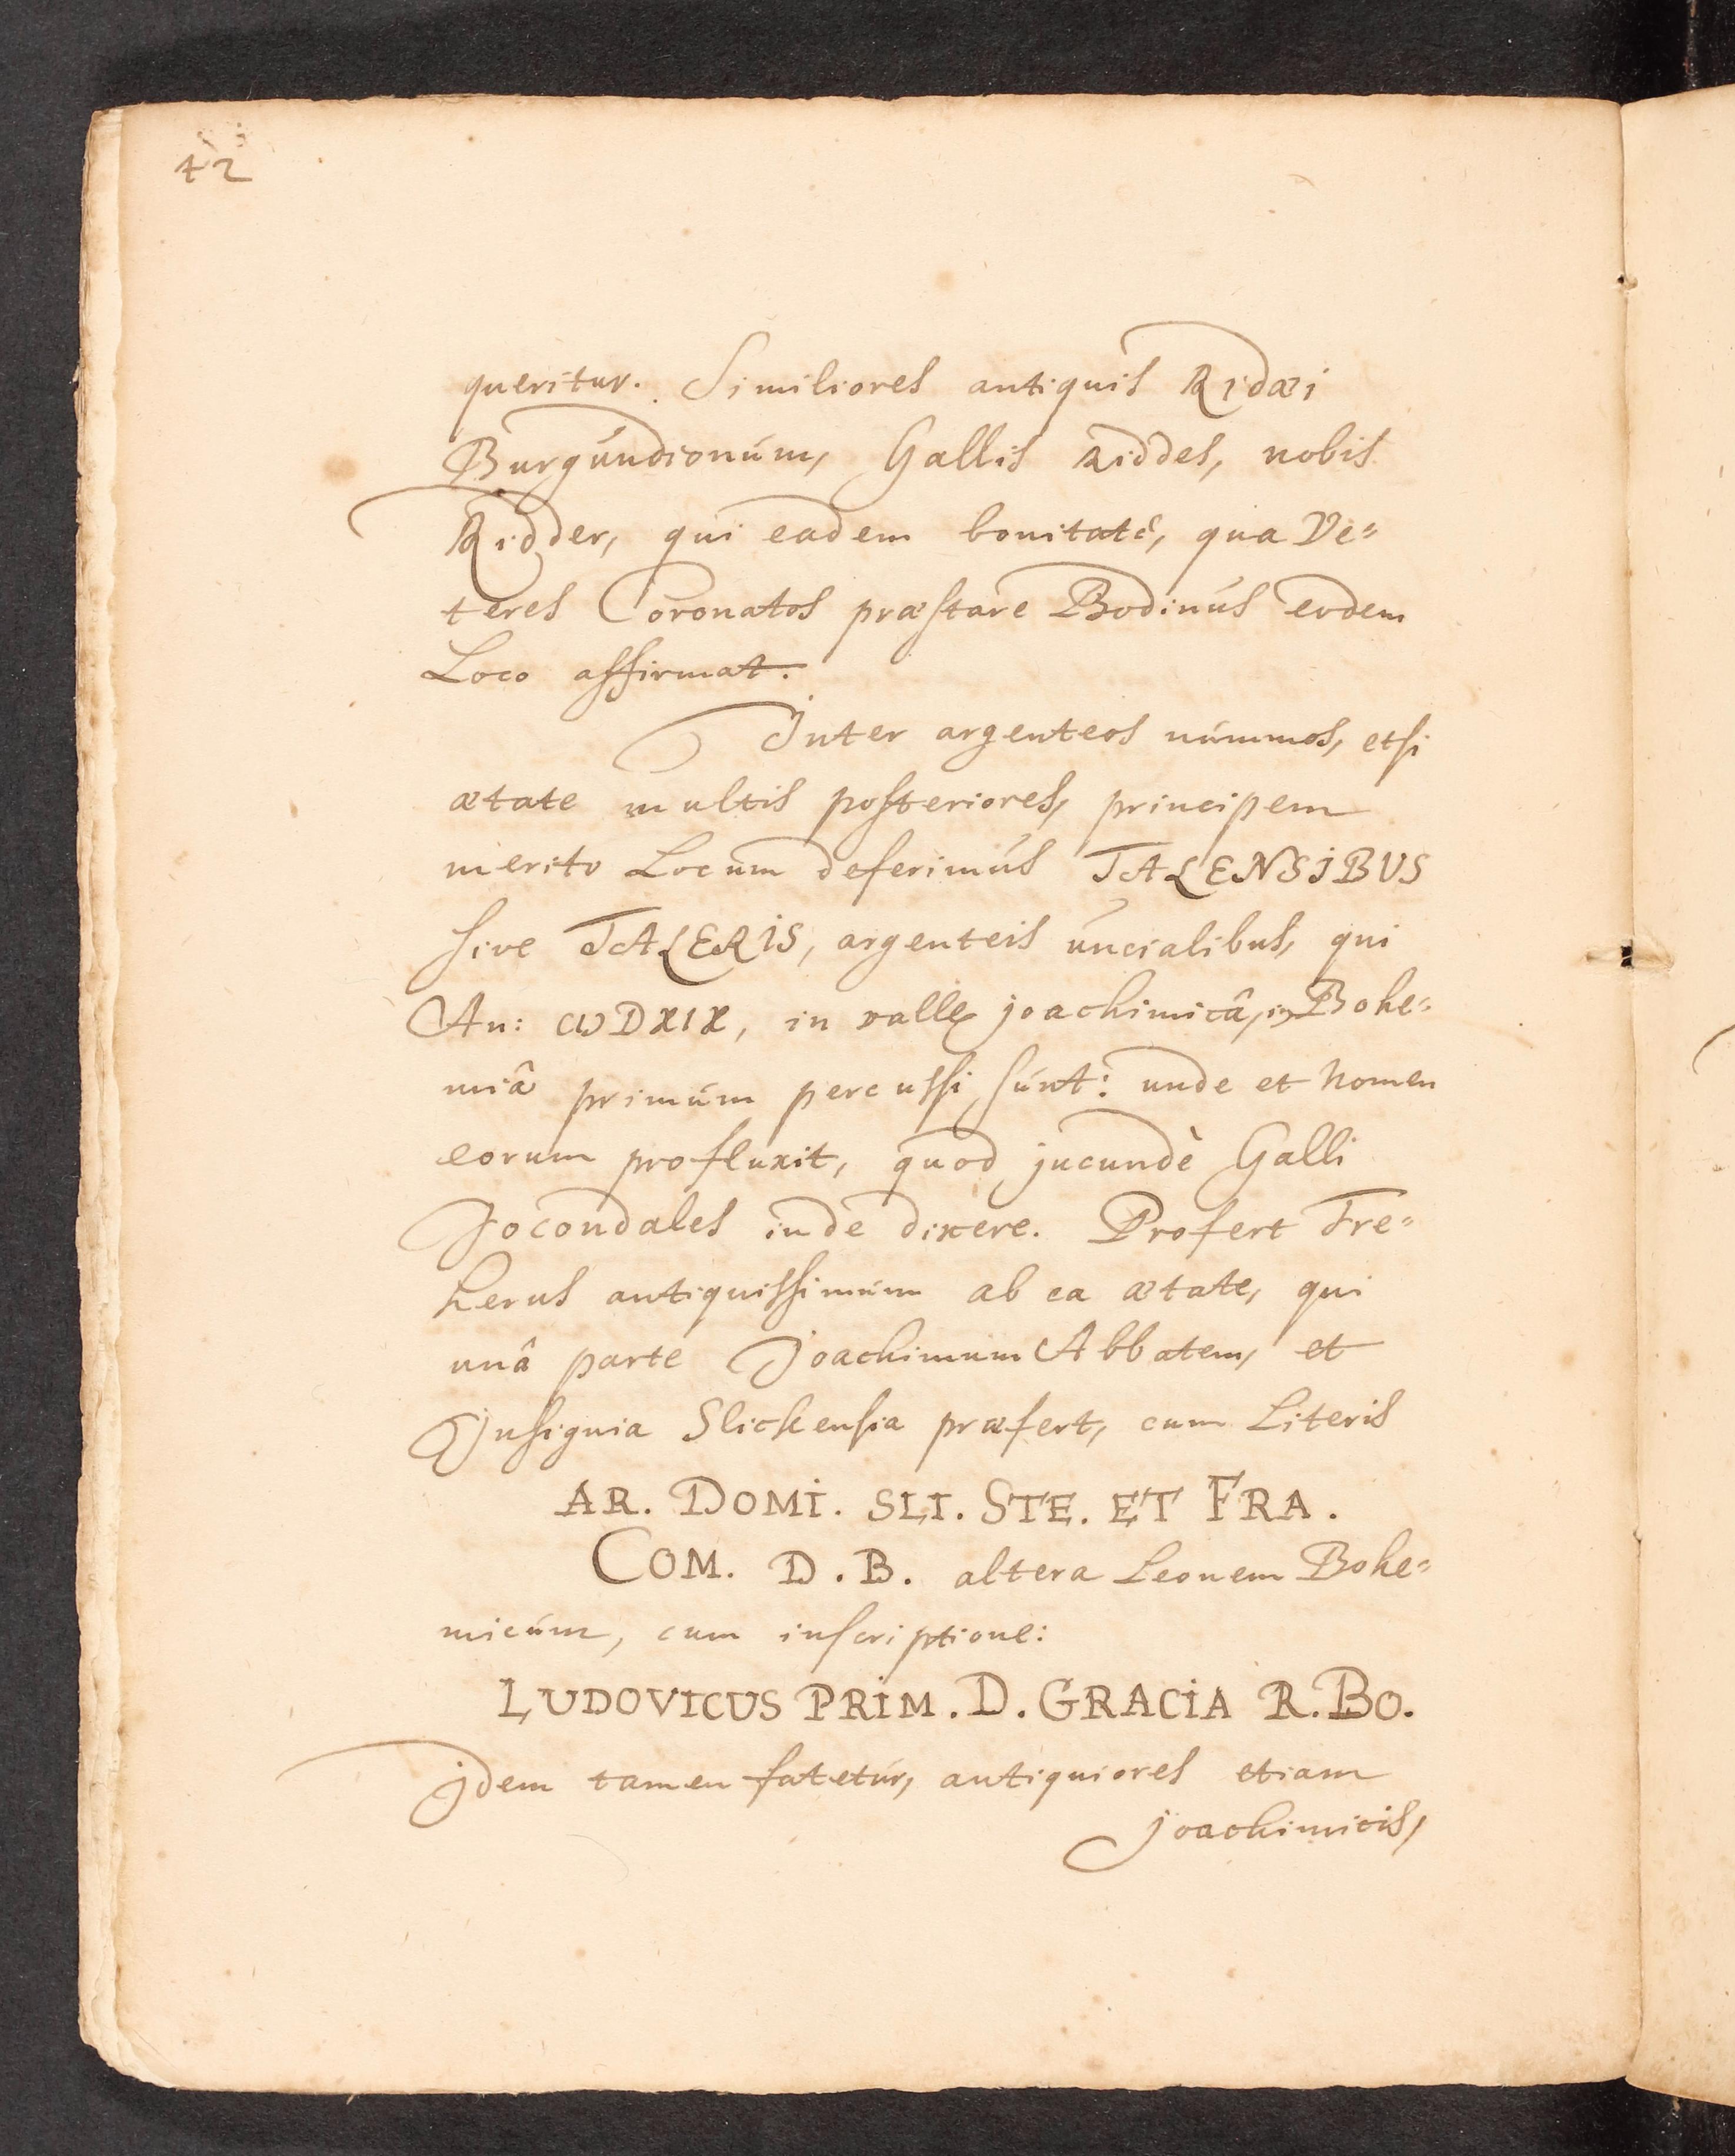 42
queritur. Similiores antiquis Ridæi
Burgúndionúm, Gallis Riddes, nobis
Ridder, qui eadem bonitate, qua Ve=
teres Coronatos præstare Bodinús eodem
Loco affirmat.
Inter argenteos númmos, etsi
ætate multis posteriores, principem
merito Locum deferimús TALENSIBUS
sive TALERIS, argenteis úncialibus, qui
An: CIↃDXIX, in valle joachimicâ, in Bohe=
miâ primúm percussi súnt: unde et nomen
eorum profluxit, quod jucundè Galli
Jocondales inde dixere. Profert Fre=
herus antiquissimúm ab ea ætate, qui
unâ parte Joachimum Abbatem, et
Insignia Slickensia præfert, cum Literis
AR. DOMI. SLI. STE. ET FRA.
COM. D. B. altera Leonem Bohe=
micúm, cum inscriptione:
LUDOVICUS PRIM. D. GRACIA R. BO.
jdem tamen fatetúr, antiquiores etiam
joachimicis,